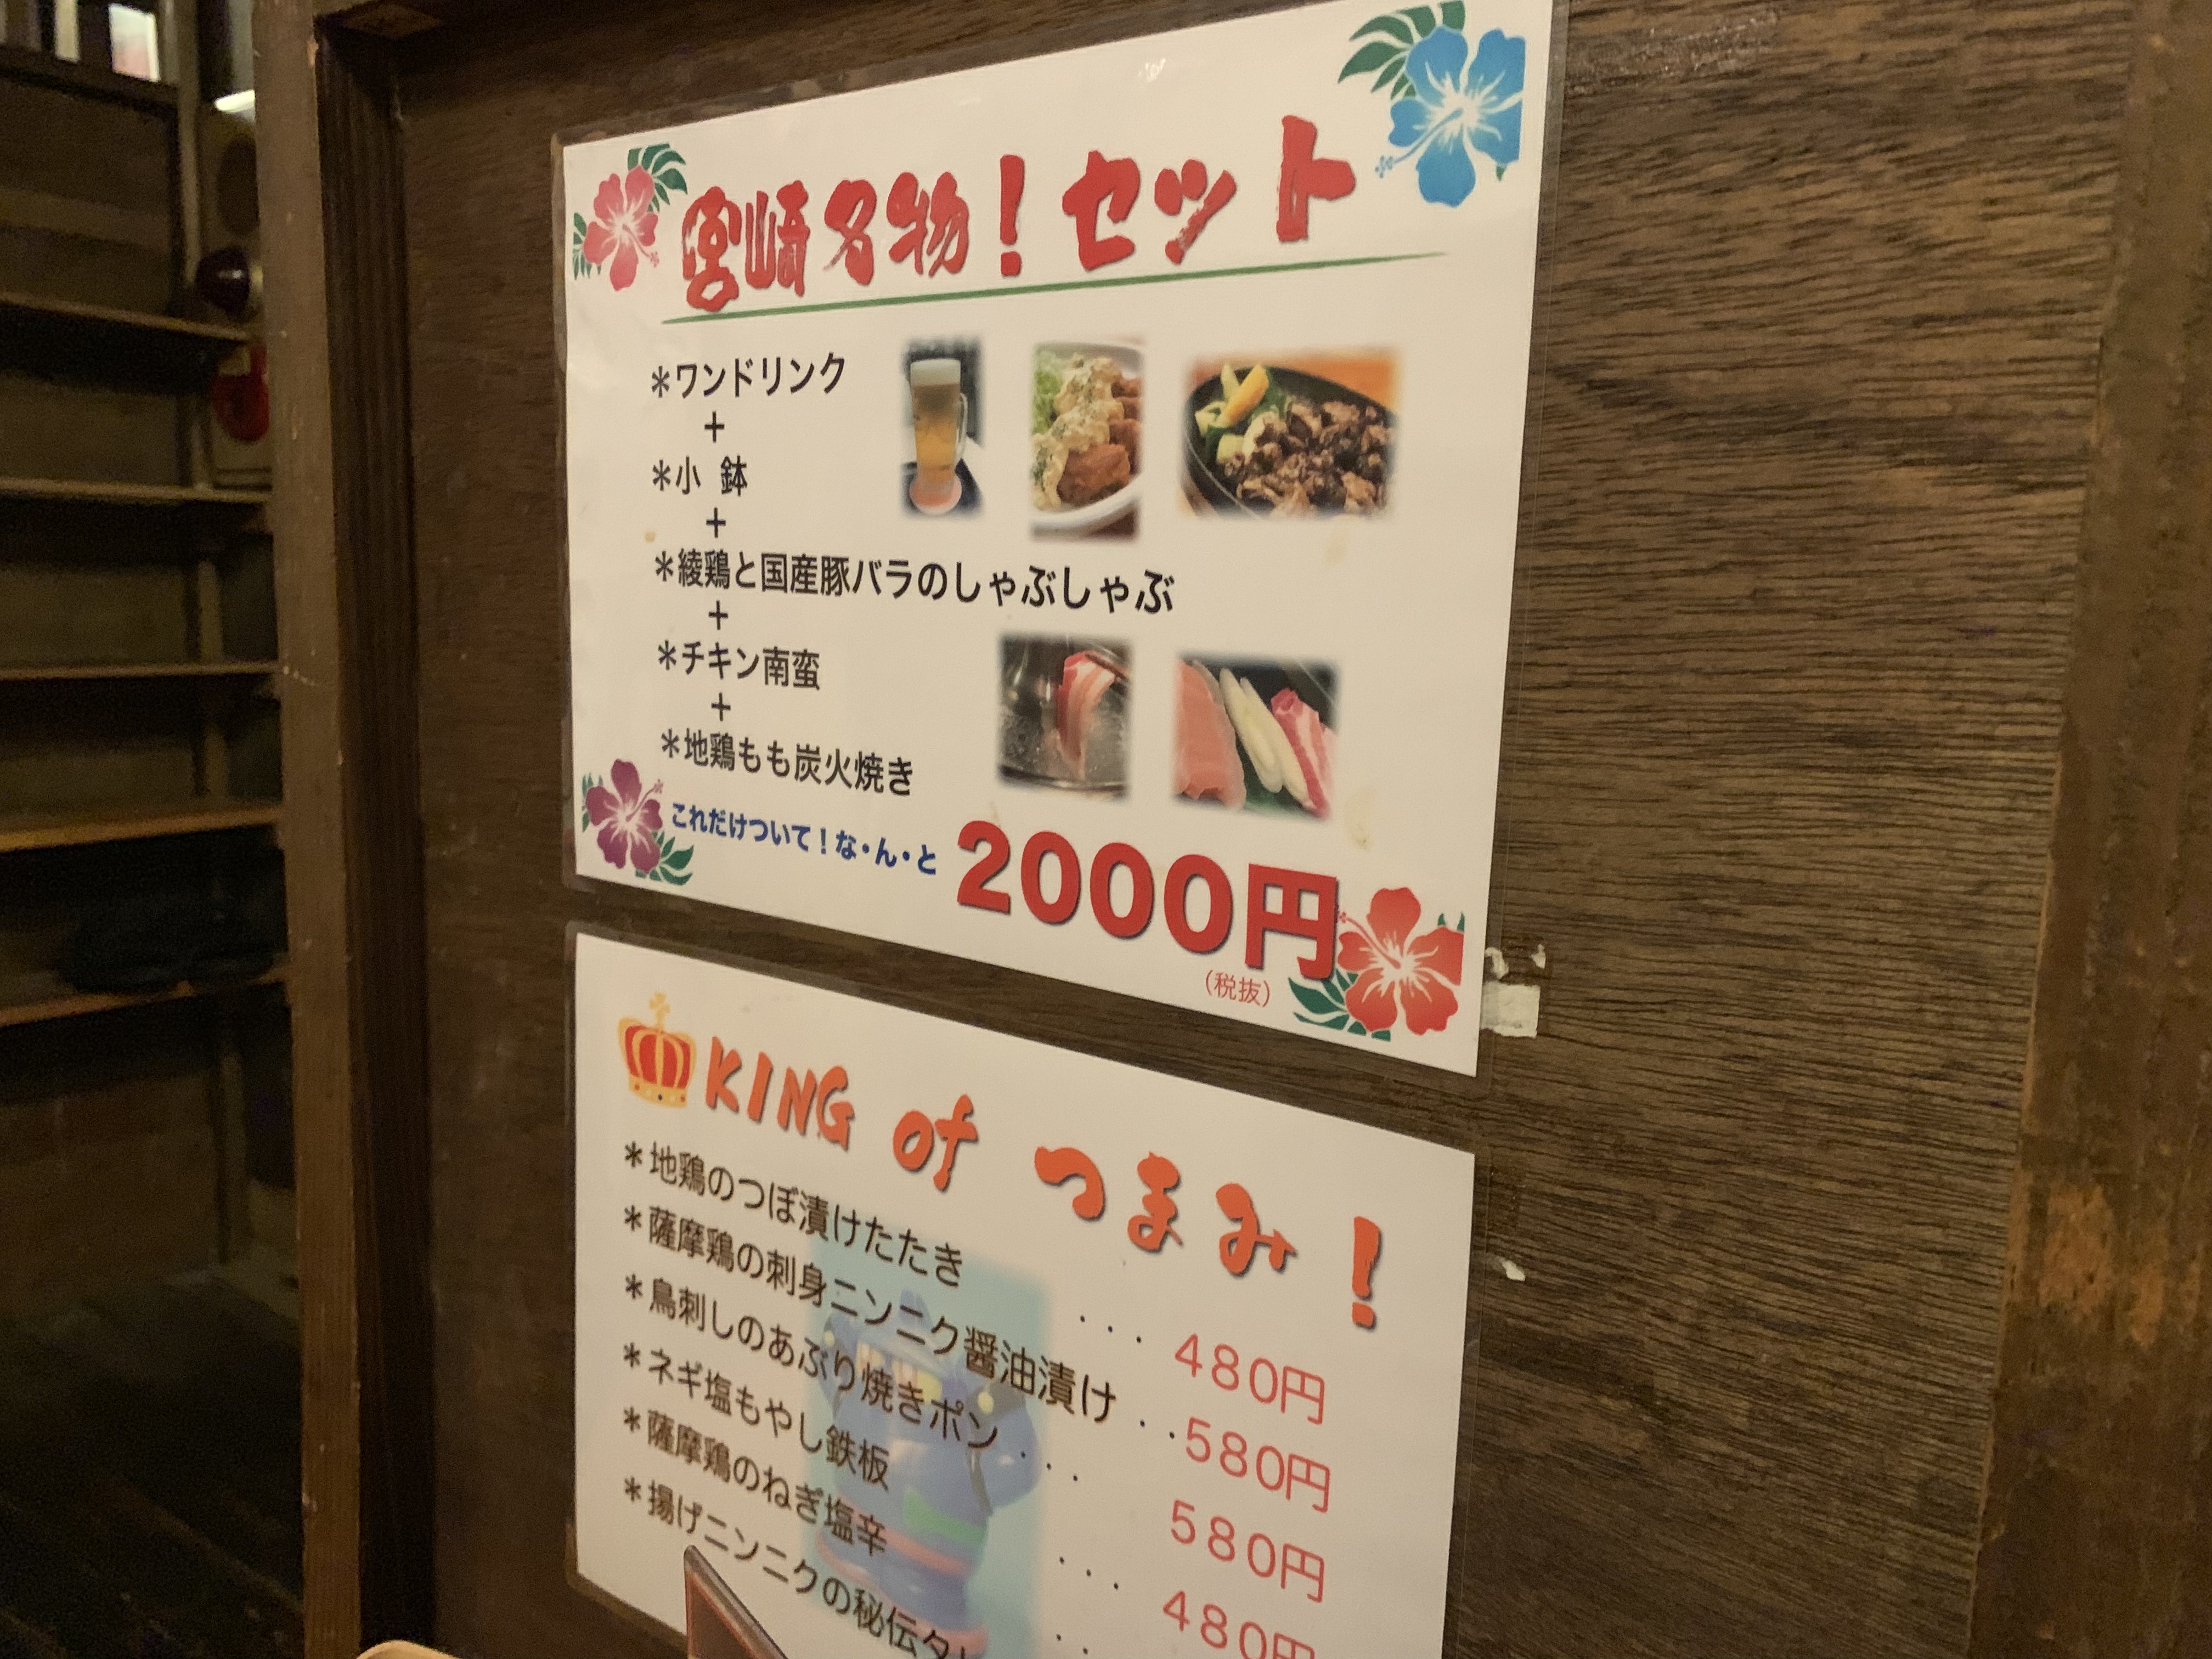 宮崎名物！セット
＊ワンドリンク
＋
＊小 鉢
＋
＊綾鶏と国産豚バラのしゃぶしゃぶ
＋
＊チキン南蛮
＋
＊地鶏もも炭火焼き
これだけついて！な・ん・と 2000円
（税抜）
KING of つまみ！
＊地鶏のつぼ漬けたたき ・・・ 480円
＊薩摩鶏の刺身ニンニク醤油漬け ・・ 580円
＊鳥刺しのあぶり焼きポン ・・・ 580円
＊ネギ塩もやし鉄板 ・・・ 480円
＊薩摩鶏のねぎ塩辛 ・・
＊揚げニンニクの秘伝タレ